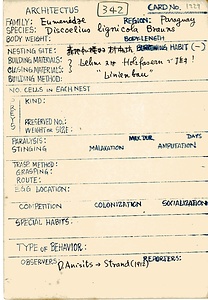 ARCHITECTUS 342 CARD No. 1929
FAMILY: Eumenidae REGION: Paraguay
SPECIES: Discoelius lignicola Brauns
BODY WEIGHT: BODY LENGTH
NESTING SITE: HABIT (-)
BUILDING MATERIALS: Lehm
CLOSING MATERIALS: "
BUILDING METHOD: "
NO. CELLS IN EACH NEST
PREYS KIND:
PRESERVED NO.:
WEIGHT OR SIZE:
PARALYSIS: MAX. DUR. DAYS
STINGING MALAXATION AMPUTATION
TRASP. METHOD:
GRASPING:
ROUTE:
EGG LOCATION:
COMPETITION COLONIZATION SOCIALIZATION
SPECIAL HABITS:
TYPE OF BEHAVIOR:
OBSERVERS: Anisits → Strand (1912) REPORTERS: